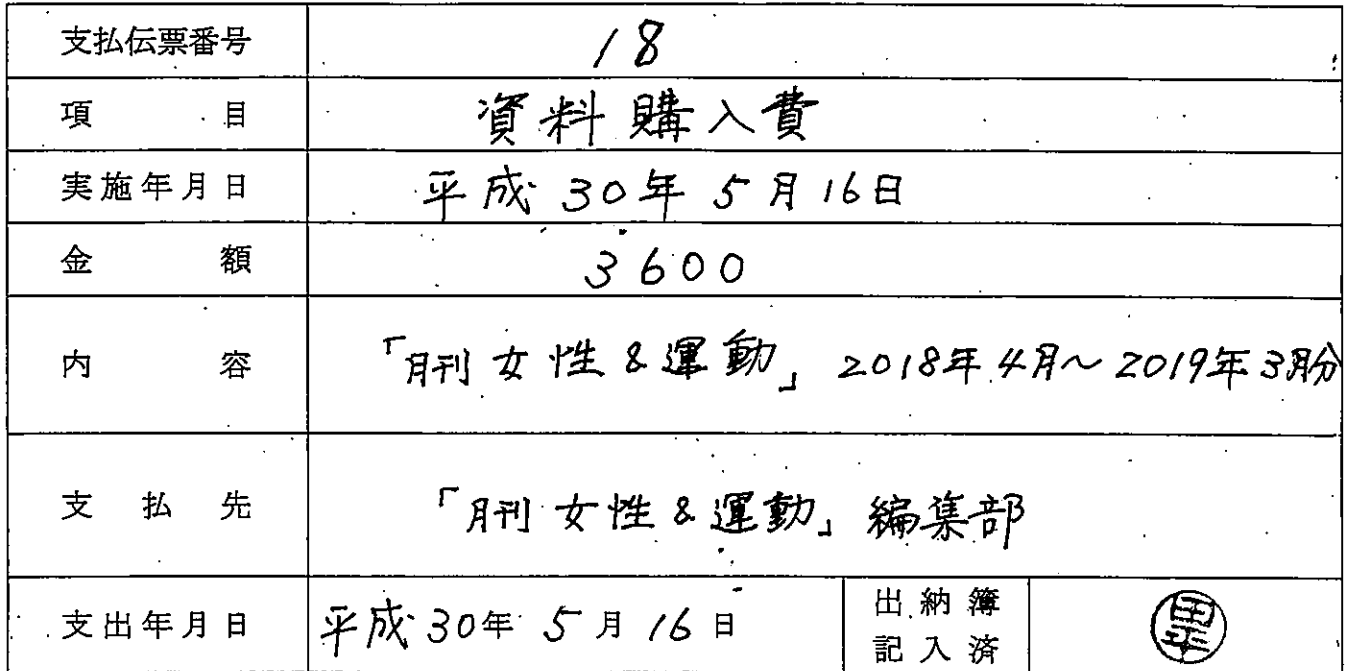 支払伝票番号 18
項目 資料購入費
実施年月日 平成30年5月16日
金額 3600
内容 「月刊女性&運動」2018年4月~2019年3月分
支払先 「月刊女性&運動」編集部
支出年月日 平成30年5月16日 出納簿記入済